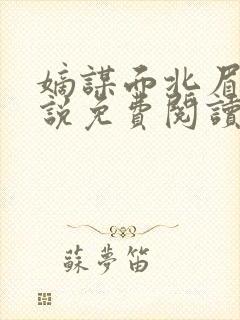 嫡謀而北眉
說免費閱讀
蘇夢笛